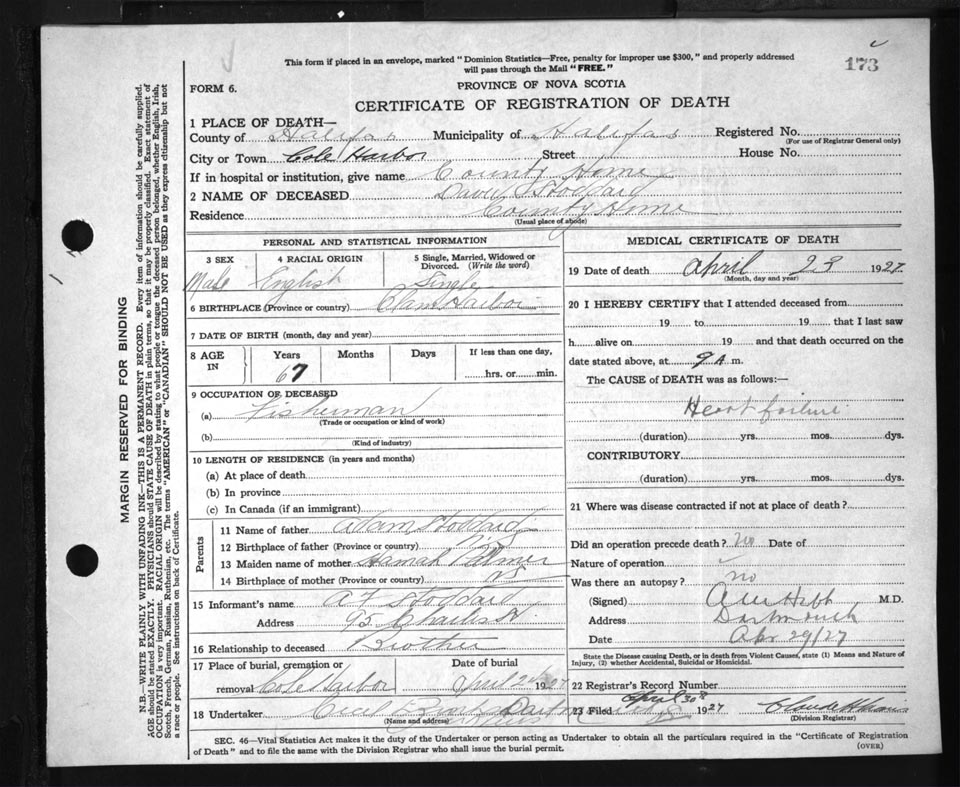 173
This form if placed in an envelope, marked "Dominion Statistics—Free, penalty for improper use $300," and properly addressed
will pass through the Mail "FREE."
FORM 6.
PROVINCE OF NOVA SCOTIA
CERTIFICATE OF REGISTRATION OF DEATH
1 PLACE OF DEATH—
County of Halifax Municipality of Halifax Registered No.
(For use of Registrar General only)
City or Town Cole Harbor Street House No.
If in hospital or institution, give name County Home
2 NAME OF DECEASED David Stoddard
Residence County Home
(Usual place of abode)
PERSONAL AND STATISTICAL INFORMATION
3 SEX 4 RACIAL ORIGIN 5 Single, Married, Widowed or
Divorced. (Write the word)
Male English Single
6 BIRTHPLACE (Province or country) Clam Harbor
7 DATE OF BIRTH (month, day and year)
8 AGE IN Years Months Days If less than one day,
67 hrs. or min.
9 OCCUPATION OF DECEASED
(a) Fisherman
(Trade or occupation or kind of work)
(b)
(Kind of industry)
10 LENGTH OF RESIDENCE (in years and months)
(a) At place of death
(b) In province
(c) In Canada (if an immigrant)
Parents
11 Name of father Adam Stoddard
12 Birthplace of father (Province or country) N.S.
13 Maiden name of mother Hannah Palmer
14 Birthplace of mother (Province or country) NS
15 Informant's name A F Stoddard
Address 93 Charles St
16 Relationship to deceased Brother
17 Place of burial, cremation or Date of burial
removal Cole Harbor April 1927
18 Undertaker
(Name and address)
MEDICAL CERTIFICATE OF DEATH
19 Date of death April 23 1927
(Month, day and year)
20 I HEREBY CERTIFY that I attended deceased from
19 to 19 that I last saw
h alive on 19 and that death occurred on the
date stated above, at 9 A m.
The CAUSE of DEATH was as follows:—
Heart failure
(duration) yrs. mos. dys.
CONTRIBUTORY
(duration) yrs. mos. dys.
21 Where was disease contracted if not at place of death?
Did an operation precede death? No Date of
Nature of operation
Was there an autopsy? no
(Signed) M.D.
Address Dartmouth
Date Apr 29/27
State the Disease causing Death, or in death from Violent Causes, state (1) Means and Nature of
Injury, (2) whether Accidental, Suicidal or Homicidal.
22 Registrar's Record Number
23 Filed April 30th 1927
(Division Registrar)
SEC. 46—Vital Statistics Act makes it the duty of the Undertaker or person acting as Undertaker to obtain all the particulars required in the "Certificate of Registration
of Death" and to file the same with the Division Registrar who shall issue the burial permit.
(OVER)
MARGIN RESERVED FOR BINDING
N.B.—WRITE PLAINLY WITH UNFADING INK—THIS IS A PERMANENT RECORD. Every item of information should be carefully supplied.
AGE should be stated EXACTLY. PHYSICIANS should STATE CAUSE OF DEATH in plain terms, so that it may be properly classified. Exact statement of
OCCUPATION is very important. RACIAL ORIGIN will be described by stating to what people or tongue the deceased person belonged, whether English, Irish,
Scotch, French, German, Russian, Ruthenian, etc. The terms "AMERICAN" or "CANADIAN" SHOULD NOT BE USED as they express citizenship but not
a race or people. See instructions on back of Certificate.